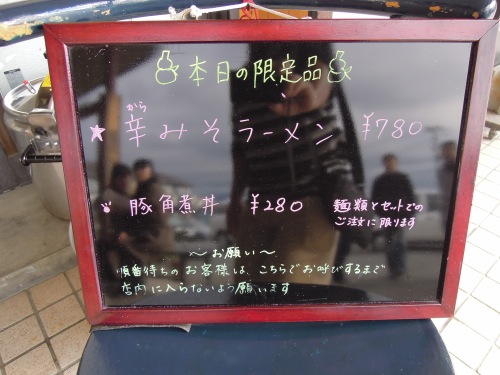 本日の限定品
から
辛みそラーメン ¥780
豚角煮丼 ¥280 麺類とセットでの
ご注文に限ります
〜お願い〜
順番待ちのお客様は、こちらでお呼びするまで
店内に入らないよう願います